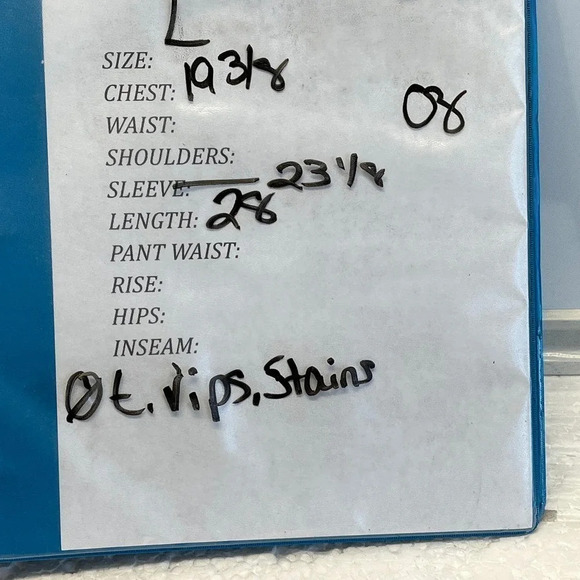 L
SIZE:
CHEST: 19 3/8
08
WAIST:
SHOULDERS:
SLEEVE: 23 1/8
LENGTH: 28
PANT WAIST:
RISE:
HIPS:
INSEAM:
Ø t, rips, Stains